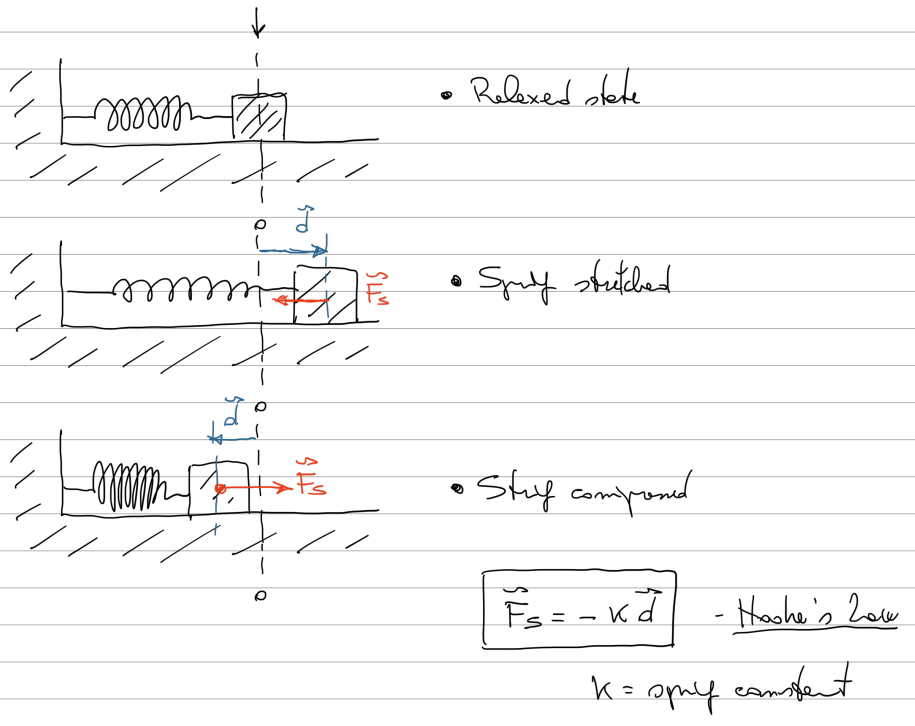 • Relaxed state
o
d⃗
• Spring stretched
F⃗s
o
d⃗
F⃗s
• String compressed
o
F⃗s = - K d⃗ - Hooke's Law
K = spring constant